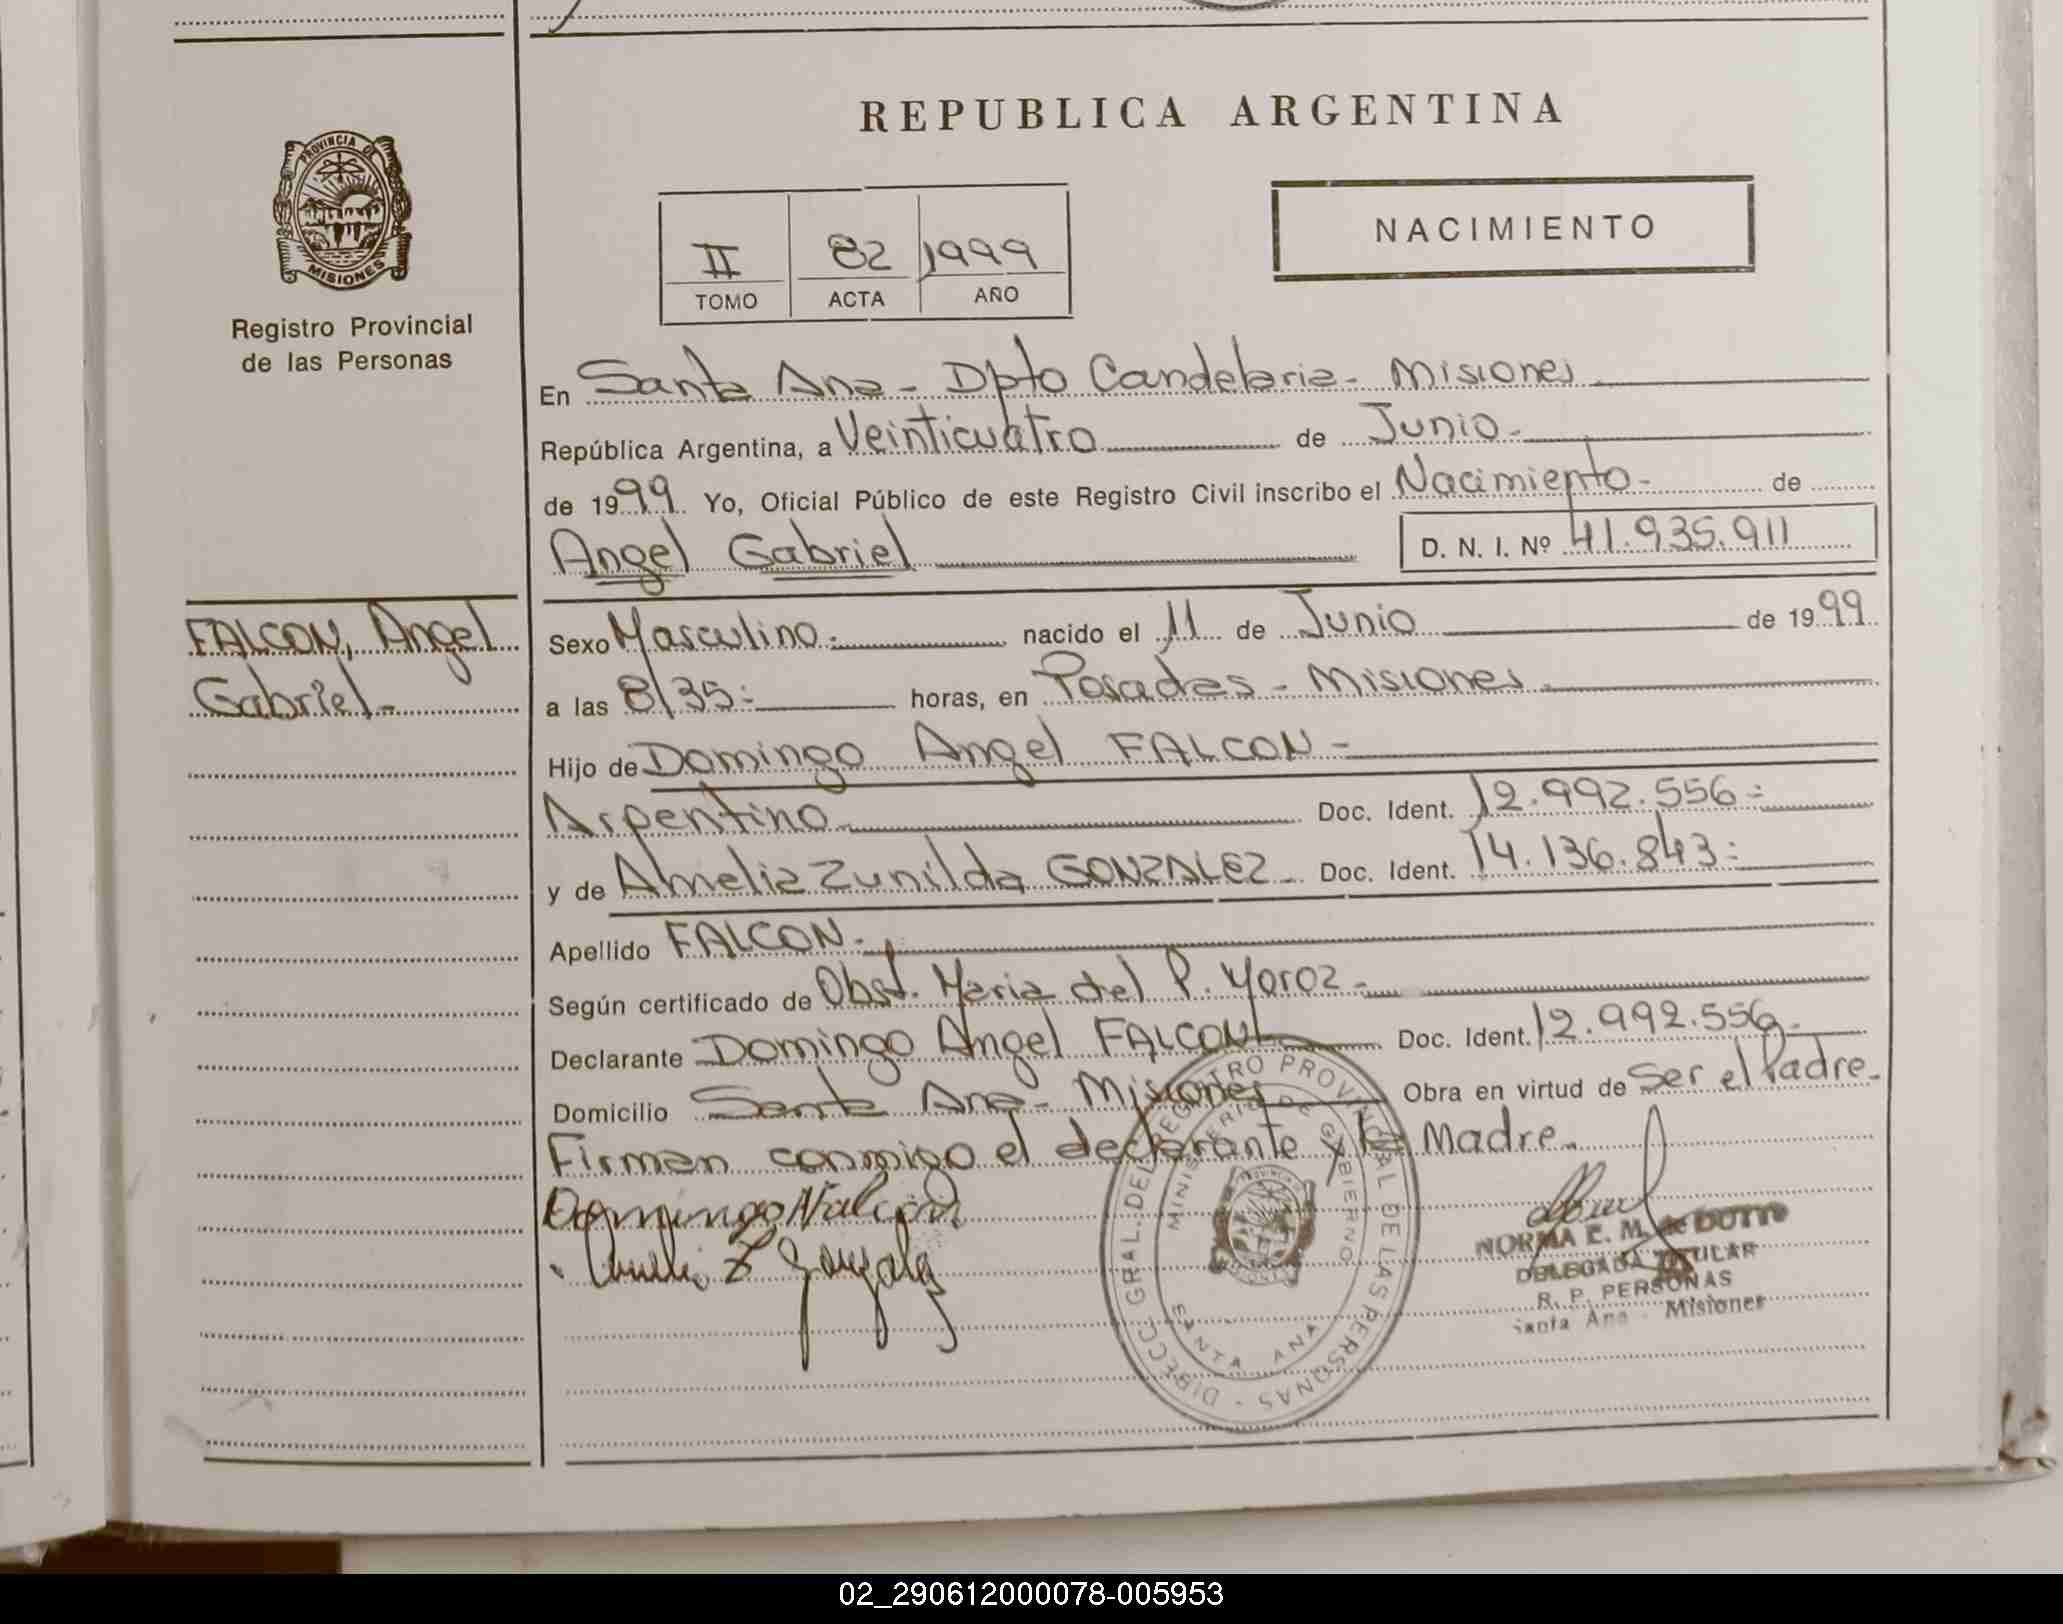 REPUBLICA ARGENTINA
PROVINCIA DE
MISIONES
Registro Provincial
de las Personas
II 82 1999
TOMO ACTA AÑO
NACIMIENTO
En Santa Ana - Dpto Candelaria - Misiones
República Argentina, a Veinticuatro de Junio -
de 1999 Yo, Oficial Público de este Registro Civil inscribo el Nacimiento - de
Angel Gabriel D. N. I. Nº 41.935.911
FALCON, Angel
Gabriel -
Sexo Masculino - nacido el 11 de Junio de 1999
a las 8/35 : horas, en Posadas - Misiones -
Hijo de Domingo Angel FALCON -
Argentino - Doc. Ident. 12.992.556 -
y de Amelia Zunilda GONZALEZ - Doc. Ident. 14.136.843 :
Apellido FALCON -
Según certificado de Obst. Maria del P. Moroz -
Declarante Domingo Angel FALCON Doc. Ident. 12.992.556 -
Domicilio Santa Ana - Misiones Obra en virtud de Ser el Padre -
Firman conmigo el declarante y la Madre -
Domingo A Falcon
Amelia Z Gonzalez
DIRECC. GRAL. DEL REGISTRO PROVINCIAL DE LAS PERSONAS -
MINISTERIO DE GOBIERNO
SANTA ANA
NORMA E. M. de DOTTO
DELEGADA TITULAR
R. P. PERSONAS
Santa Ana - Misiones
02_290612000078-005953